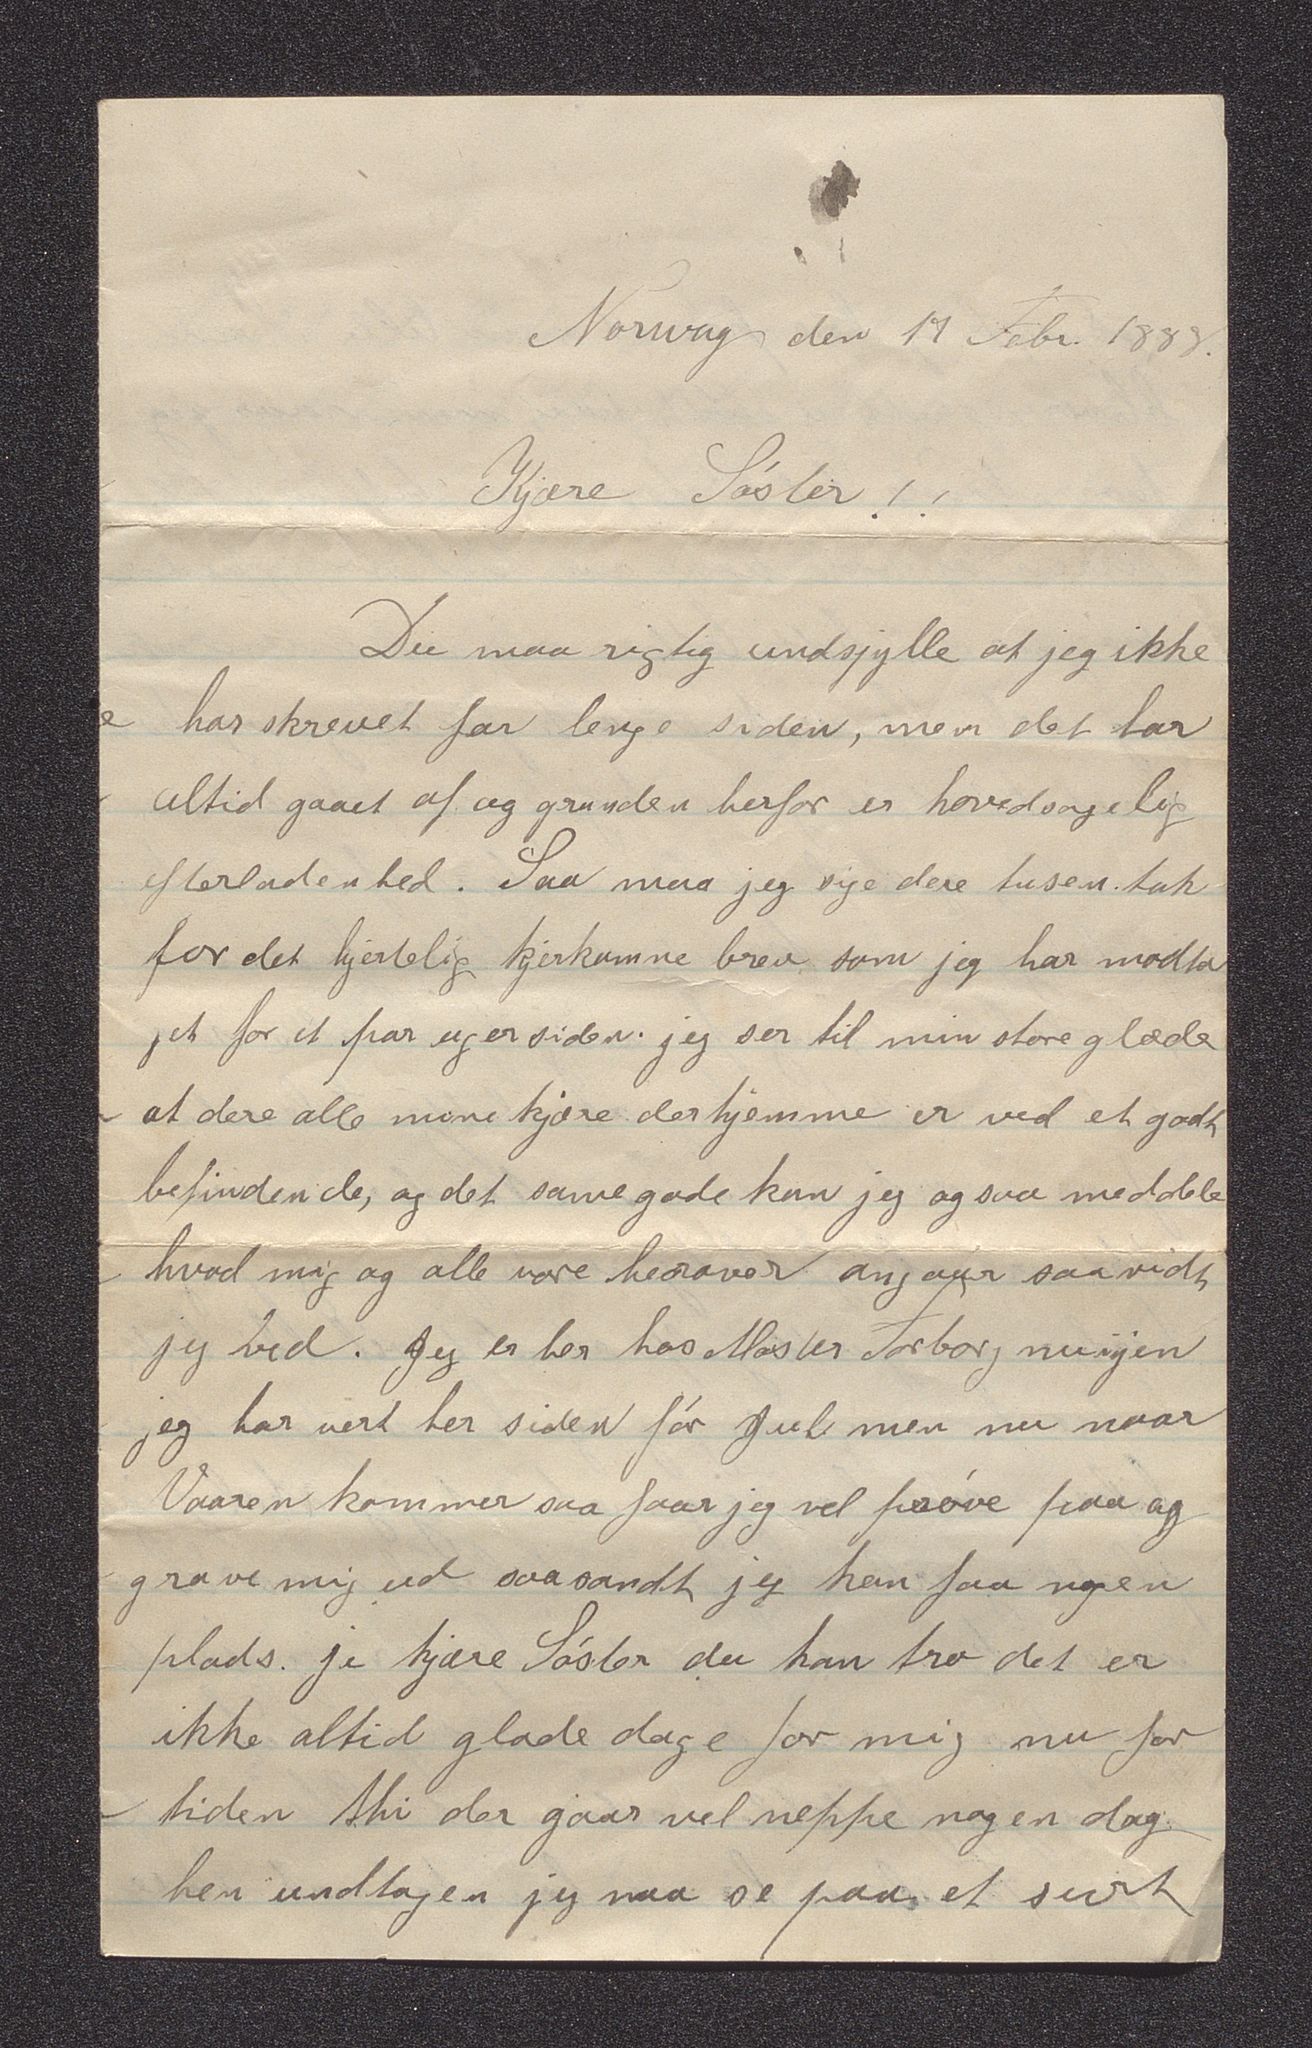 Norway den 17 Febr. 1888.
Kjære Søster!!
Du maa rigtig undsjylle at jeg ikke
har skrevet for lenge siden, men det har
altid gaaet af og grunden herfor er hovedsagelig
efterladenhed. Saa maa jeg sige dere tusen tak
for det hjertelig kjerkomne brev som jeg har modta
get for et par uger siden. jeg ser til min store glæde
at dere alle mine kjære derhjemme er ved et godt
befindende, og det same gode kan jeg ogsaa meddele
hvad mig og alle vore heraver angaar saavidt
jeg ved. Jeg er her hos Moster Torborg nuigjen
jeg har vert her siden før Jul men nu naar
Vaaren kommer saa faar jeg vel prøve paa og
grave mig ud saasandt jeg kan faa nogen
plads. ja kjære Søster du kan tro det er
ikke altid glade dage for mig nu for
tiden thi der gaar vel neppe nogen dag
hen undtagen jeg maa se paa et surt